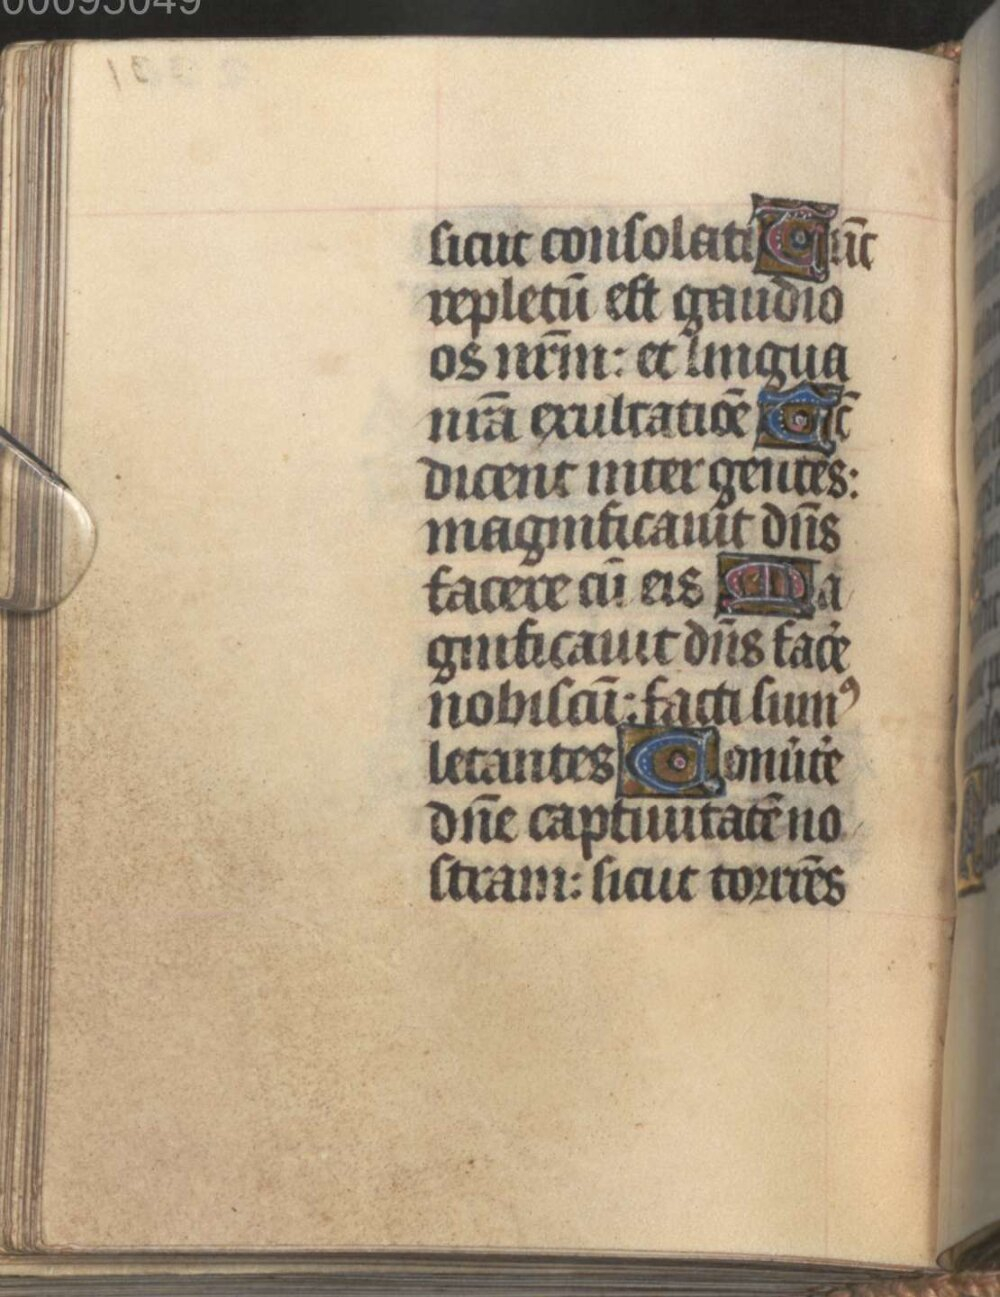 00095049
sicut consolati Tūc
repletū est gaudio
os nr̄m: et lingua
nr̄a exultatiōe Tūc
dicent inter gentes:
magnificauit dn̄s
facere cū eis Ma
gnificauit dn̄s facē
nobiscū: facti sumꝯ
letantes Conūtē
dn̄e captiuitatē no
stram: sicut torrēs